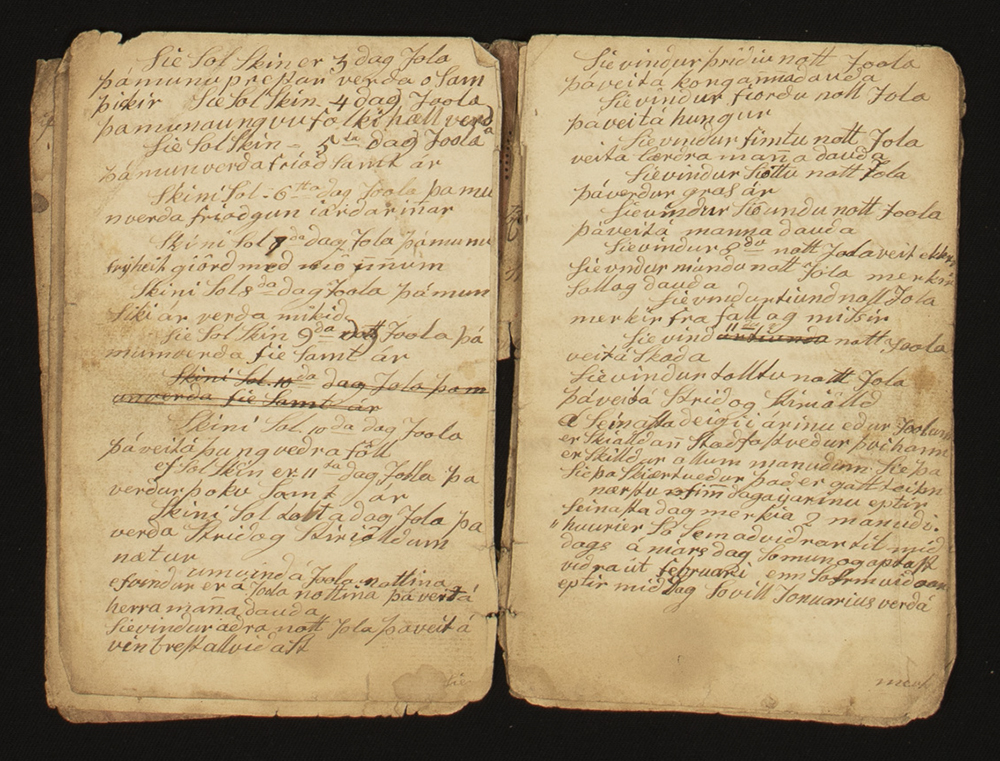 Sie Sol Skin er 3 dag Jola
þá munu prestar verda o Sam
þikir Sie Sol Skin 4 dag Joola
þa muna ungvu fólki hætt verda
Sie Sol Skin - 5 da dag Joola
þá mun verda friod samt ár
Skini Sol - 6 tta dag Joola þa mu
nverda friodgun iardarinar
Skini Sol 7 da dag Jola þá munu
giörd med
Skini Sol 8 da dag Joola þá mun
Siki ar verda mikid
Sie Sol Skin 9 da dag Joola þá
mun verda Sie Samt ár
Skini Sol 10 da dag Jola þa m
un verda Sie Samt ár
Skini Sol 10 da dag Joola
þá veit á þung vedra föll
ef Sol Skin er 11 ta dag Jola þa
verdur þoku Samt ár
Skini Sol tolfta dag Jola þa
verda Strid og Stiriöldum
nætur
um vind á Joola nottina
ef vindur er á Jola nottina þá veit á
herra mana dauda
Sie vindur adra nott Jola þa veit á
vintrest allvidast
Sie
Sie vindur þridiu nott Joola
þá veit á konganna dauda
Sie vindur fiordu nott Jola
þá veit á hungur
Sie vindur fimtu nott Jola
veit á lærdra mana dauda
Sie vindur Siöttu nott Jola
þá verdur gras ár
Sie vindur Siöundu nott Joola
þá veit á manna dauda
Sie vindur 8 da nott Jola veit
Sie vindur niundu nott Jola merkir
Sott og dauda
Sie vindur tiund nott Jola
merkir fra fall og missir
Sie vind 11 nott Joola
veit á Skada
Sie vindur tolftu nott Jola
þá veit á Strid og Stiriölld
Seinasta deigi i árinu edur Joolum
er Skialldan Stadfast vedur þvi hann
er Skilldur öllum manudum Sie þa
Sie þa Skiært vedur þad er gott teikn
næstu fimm daga i árinu eptir
Seinasta dag merkia 2 manudi
huurier So Sem advidrar til mid
dags á mars dag So mun og aptast
vidra ut februari enn So Sem vidrar
eptir mid dag So vill Jonuarius verdá